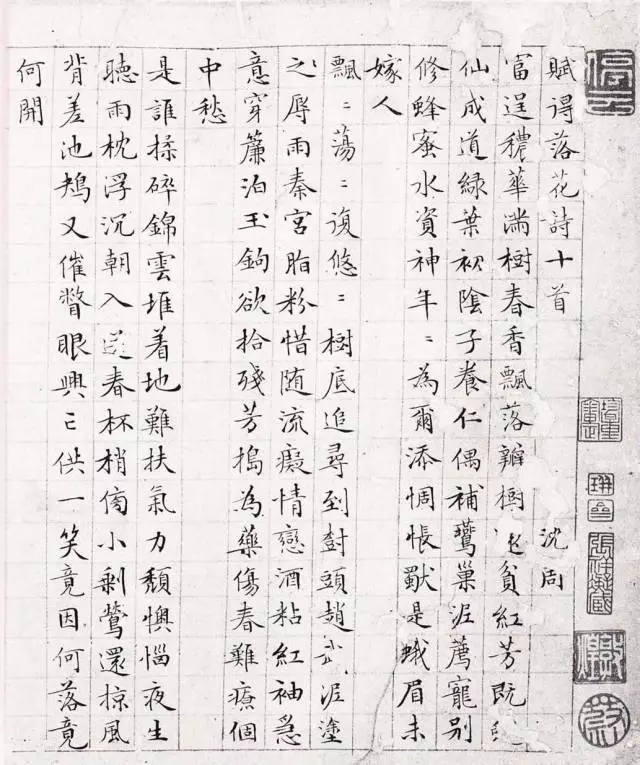 賦得落花詩十首 沈周
富逞穠華滿樹春香飄落瓣樹貧紅芳既
仙成道綠葉初陰子養仁偶補鶯巢泥薦寵別
修蜂蜜水資神年〻為爾添惆悵是蛾眉未
嫁人
飄〻蕩〻復悠〻樹底追尋到樹頭趙武泥塗
之辱雨秦宮脂粉惜随流癡情戀酒粘紅袖急
意穿簾泊玉鉤欲拾殘芳搗為藥傷春難療個
中愁
是誰揉碎錦雲堆着地難扶氣力頹懊惱夜生
聽雨枕浮沉朝入送春杯梢傍小剩鶯還掠風
背差池鳩又催瞥眼興亡供一笑竟因何落竟
何開